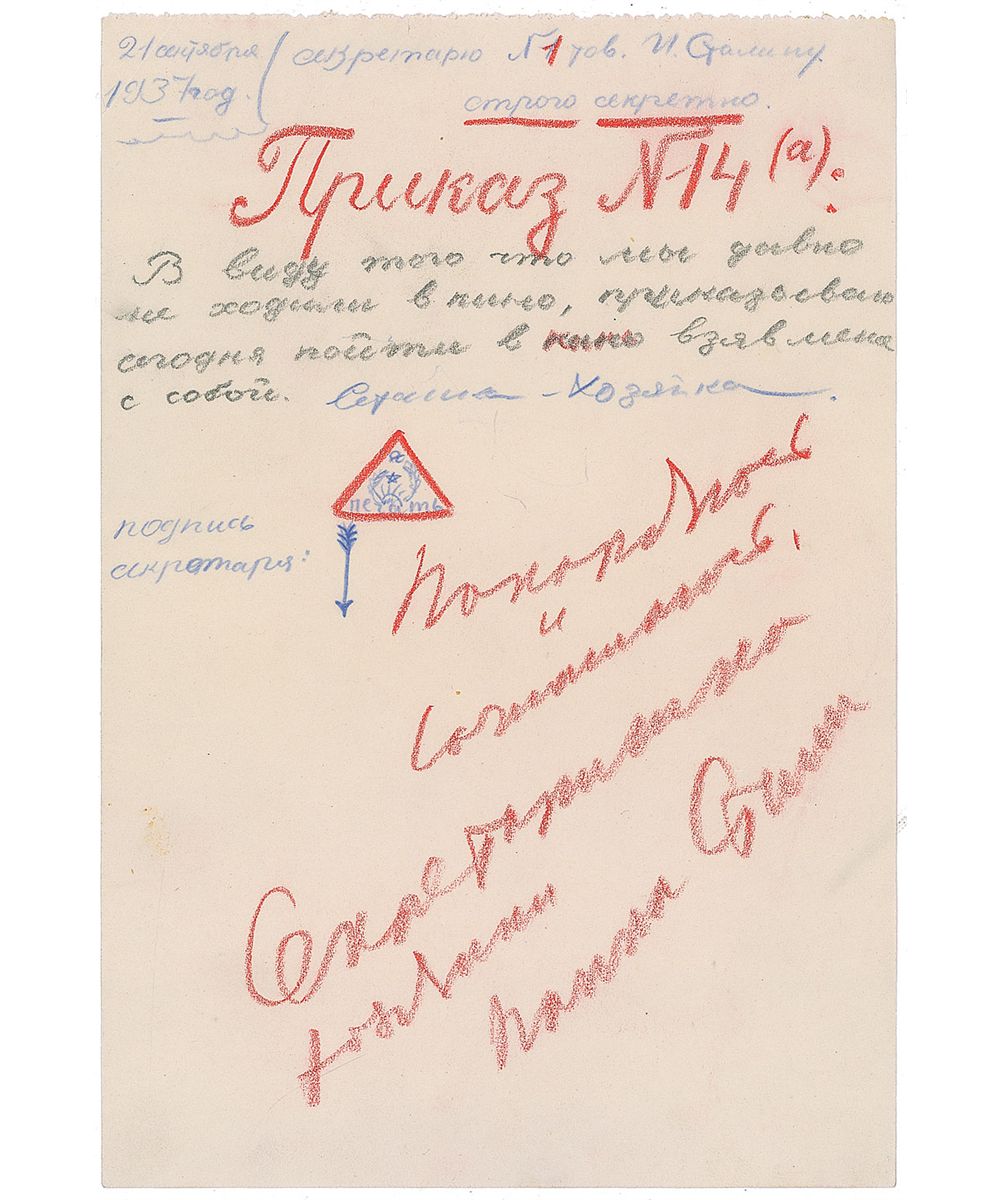 21 октября
1937 год.
секретарю N1 тов. И. Сталину.
строго секретно.
Приказ N14 (а):
В виду того что мы давно
не ходили в кино, приказываю
сегодня пойти в кино взяв меня
с собой. Сетанка - Хозяйка.
печать
подпись
секретаря:
Покоряюсь
и
Секретаришко
хозяйки
Сталин